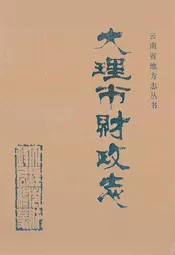 云南省地方志丛书
大理市财政志